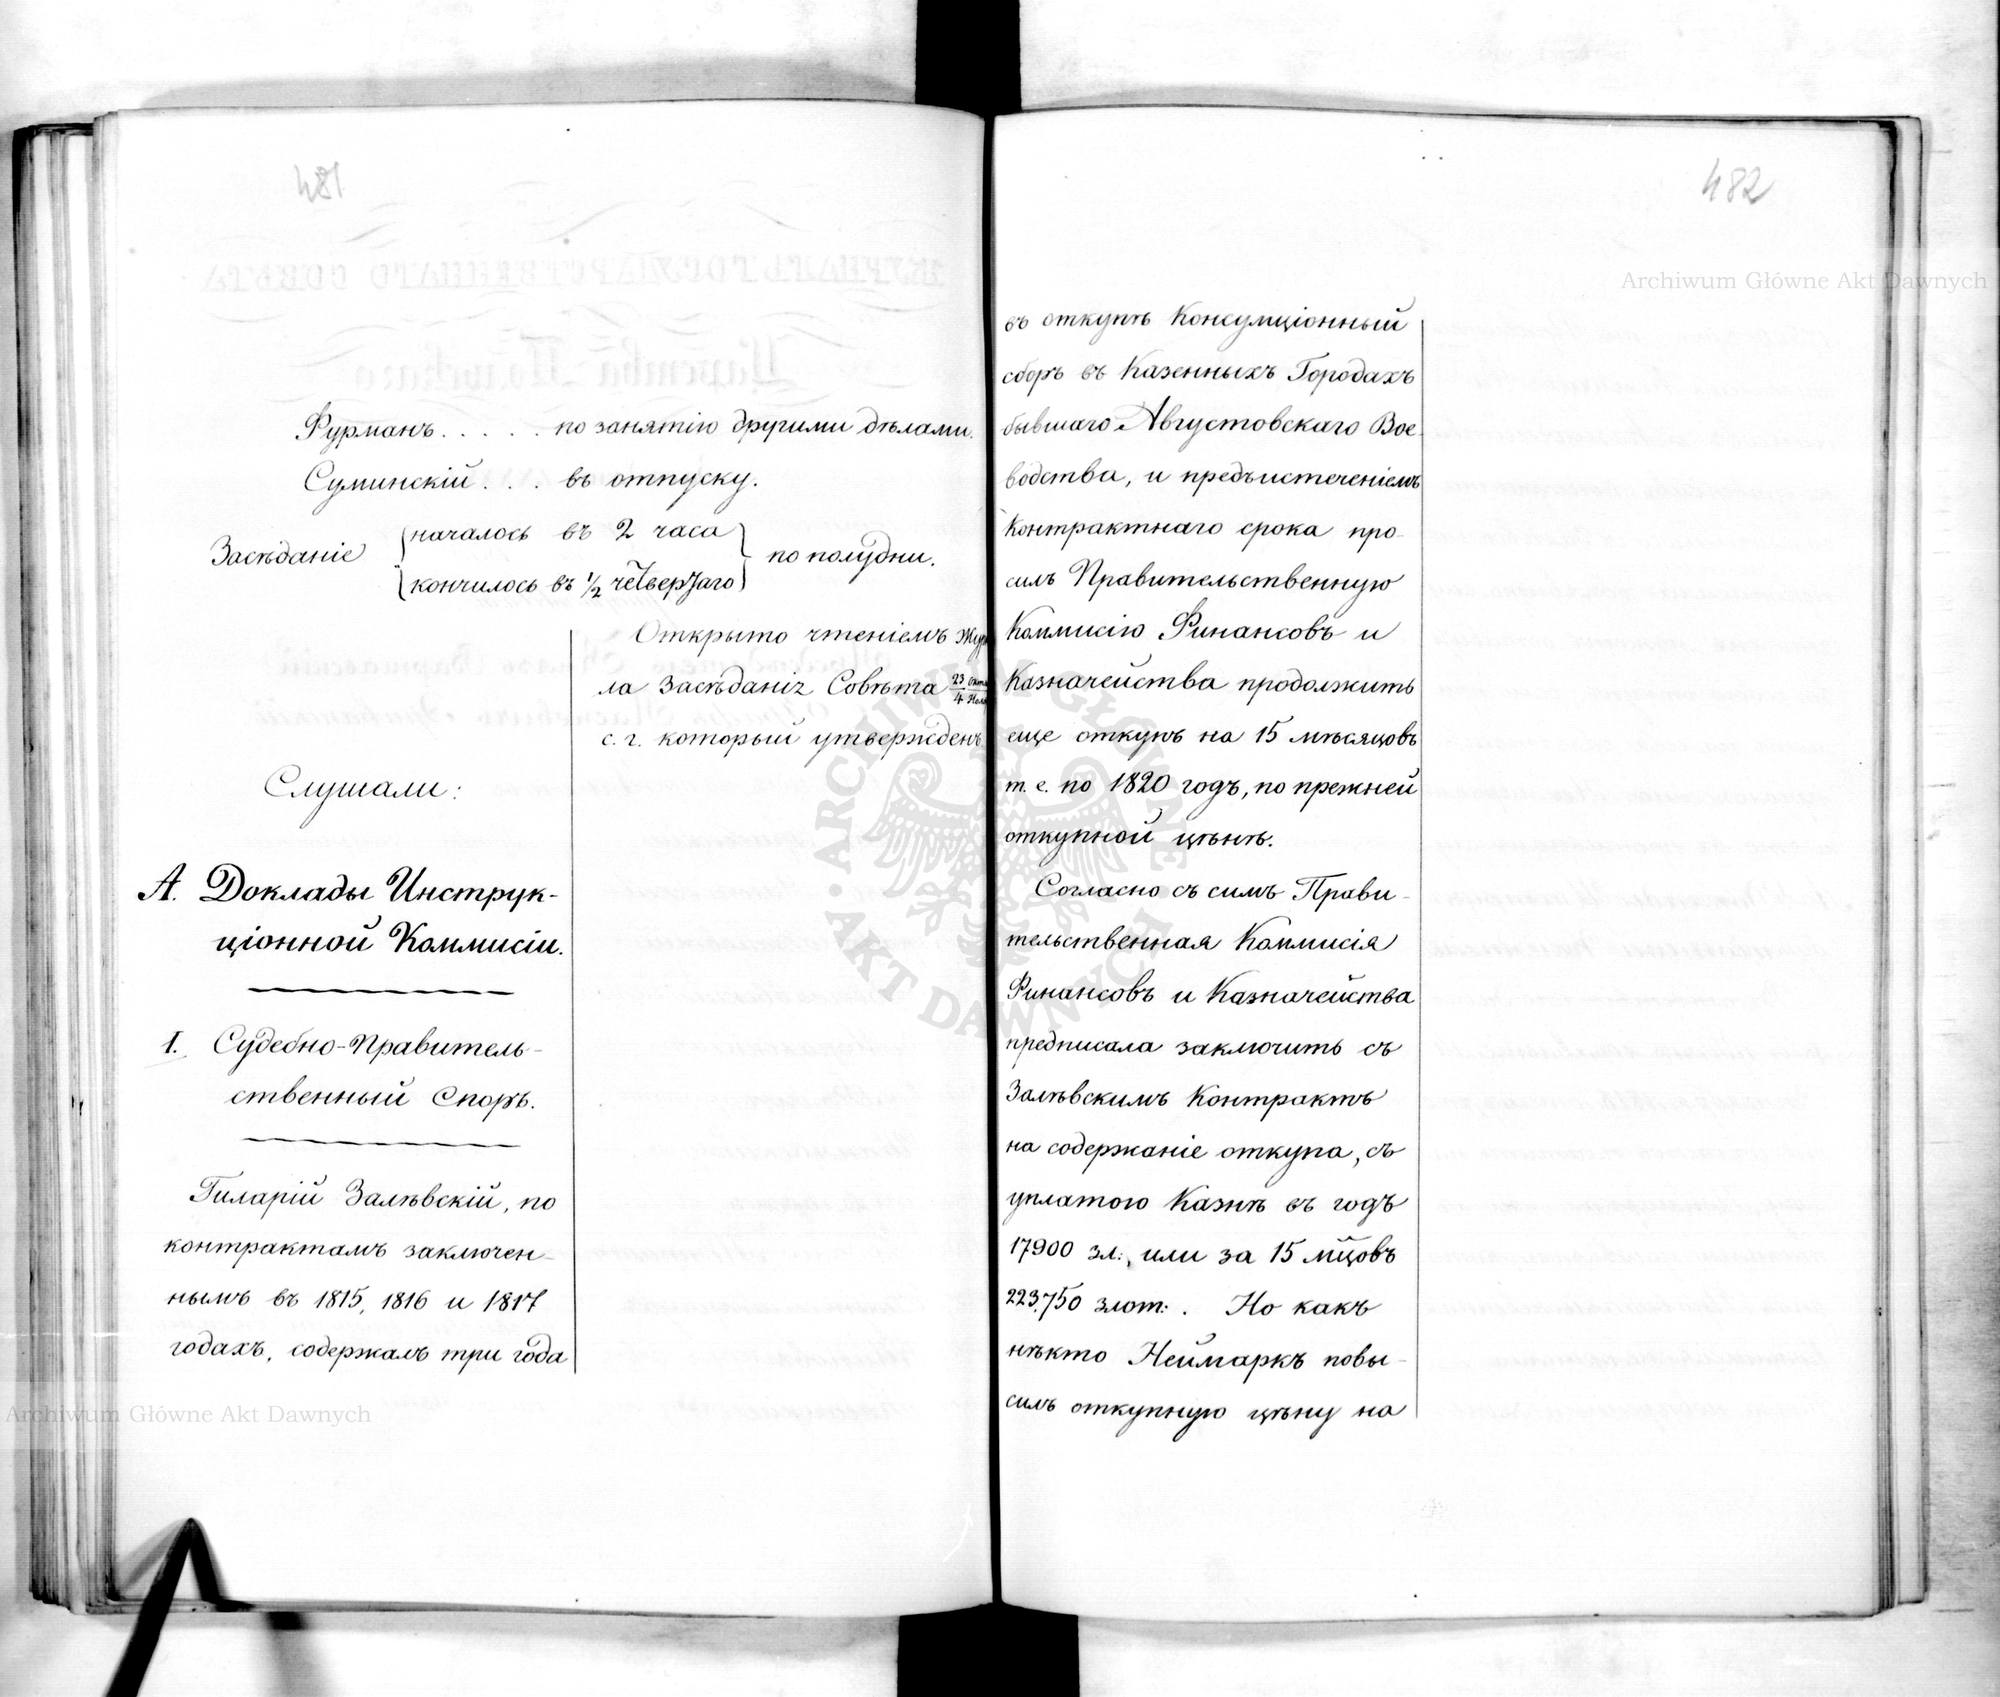 481
Фурманъ..... по занятію другими дѣлами.
Суминскій... въ отпуску.
Засѣданіе началось въ 2 часа
кончилось въ 1/2 четвертаго по полудни.
Открыто чтеніемъ Жур
ла Засѣданія Совѣта 23/4
с. г. который утвержденъ.
Слушали:
А. Доклады Инструк-
ціонной Коммисіи.
I. Судебно-Правитель-
ственный Споръ.
Гиларій Залѣвскій, по
контрактамъ заключен-
нымъ въ 1815, 1816 и 1817
годахъ, содержалъ три года
482
въ откупѣ Консумціонный
сборъ въ Казенныхъ Городахъ
бывшаго Августовскаго Вое-
водства, и предъистеченіемъ
Контрактнаго срока про-
силъ Правительственную
Коммисію Финансовъ и
Казначейства продолжить
еще откупъ на 15 мѣсяцовъ
т. е. по 1820 годъ, по прежней
откупной цѣнѣ.
Согласно съ симъ Прави-
тельственная Коммисія
Финансовъ и Казначейства
предписала заключить съ
Залѣвскимъ Контрактъ
на содержаніе откупа, съ
уплатою Казнѣ въ годъ
17900 зл:, или за 15 мцовъ
223,750 злот:. Но какъ
нѣкто Неймаркъ повы-
силъ откупную цѣну на
Archiwum Główne Akt Dawnych
Archiwum Główne Akt Dawnych
ARCHIWUM GŁÓWNE AKT DAWNYCH